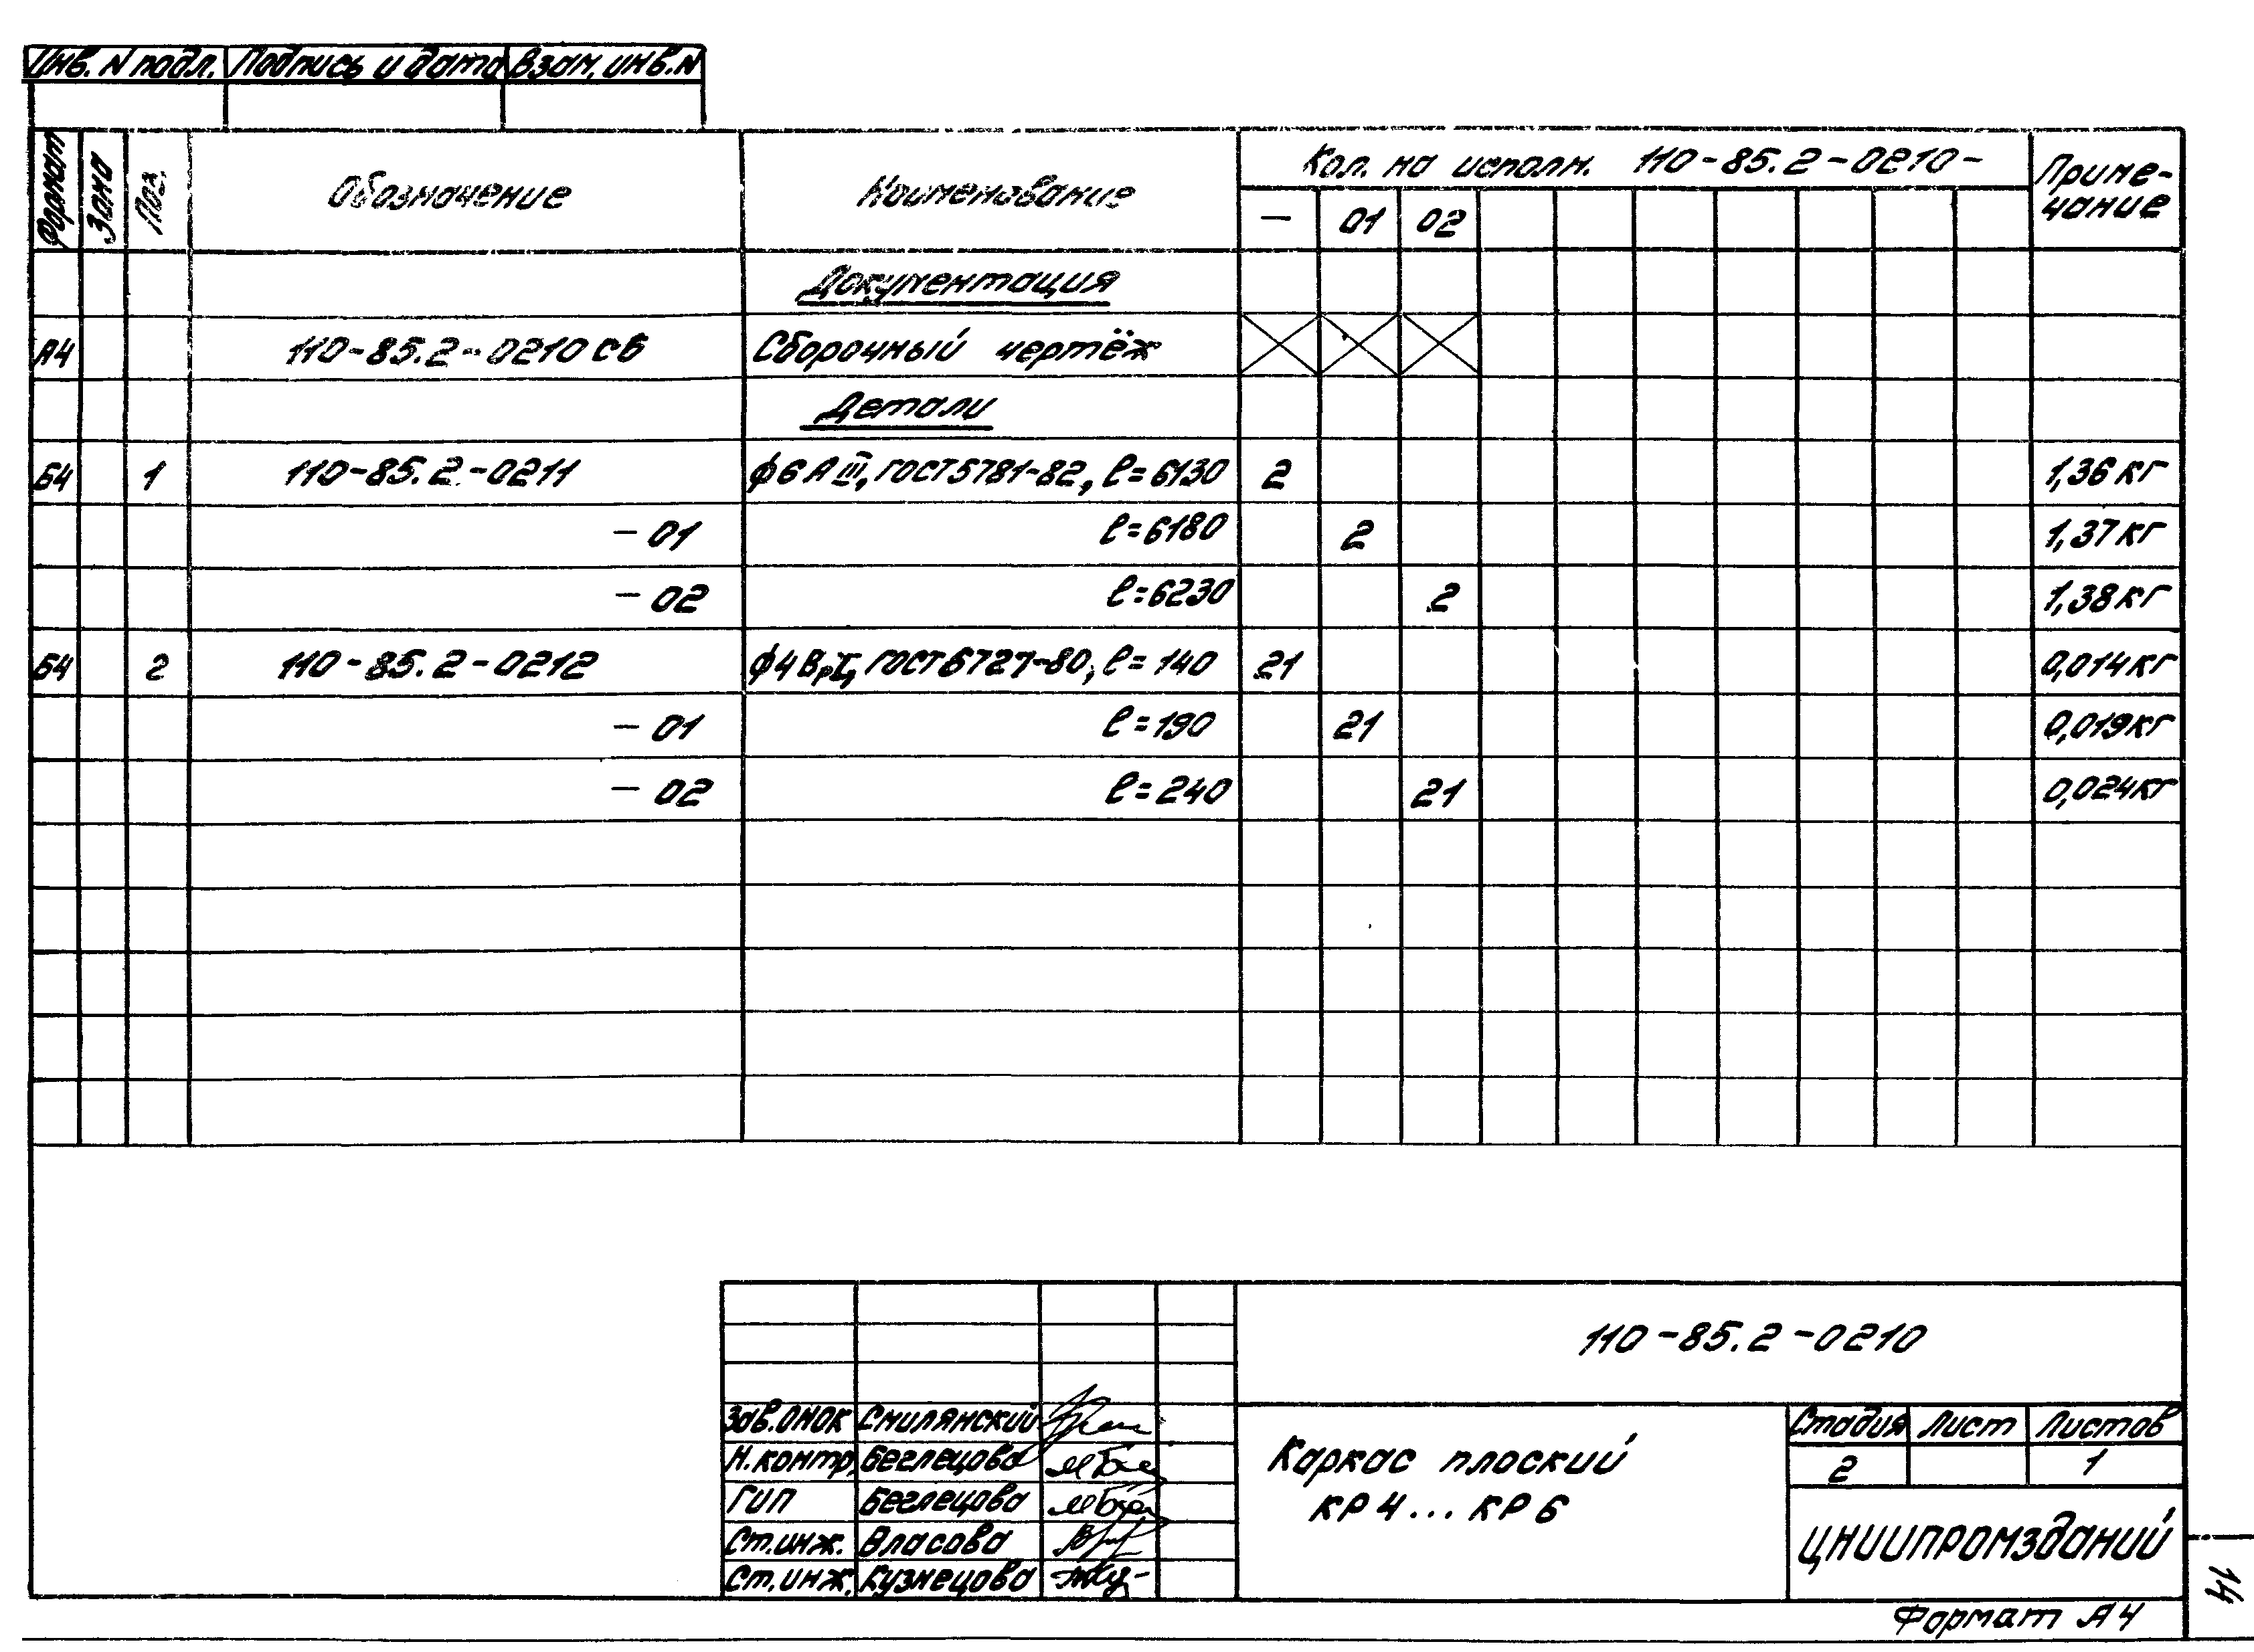 Инв. N подл. Подпись и дата Взам. инв. N
Формат Зона Поз. Обозначение Наименование Кол. на исполн. 110-85.2-0210- Приме-
чание
— 01 02
Документация
А4 110-85.2-0210 СБ Сборочный чертёж
Детали
Б4 1 110-85.2-0211 ϕ6 А III, ГОСТ 5781-82, ℓ=6130 2 1,36 кг
— 01 ℓ=6180 2 1,37 кг
— 02 ℓ=6230 2 1,38 кг
Б4 2 110-85.2-0212 ϕ4 Вр I, ГОСТ 6727-80, ℓ=140 21 0,014 кг
— 01 ℓ=190 21 0,019 кг
— 02 ℓ=240 21 0,024 кг
110-85.2-0210
Зав. ОНОК Смилянский
Н. контр. Беглецова
ГИП Беглецова
Ст. инж. Власова
Ст. инж. Кузнецова
Каркас плоский
КР 4 ... КР 6
Стадия Лист Листов
2 1
ЦНИИПРОМЗДАНИЙ
14
Формат А4